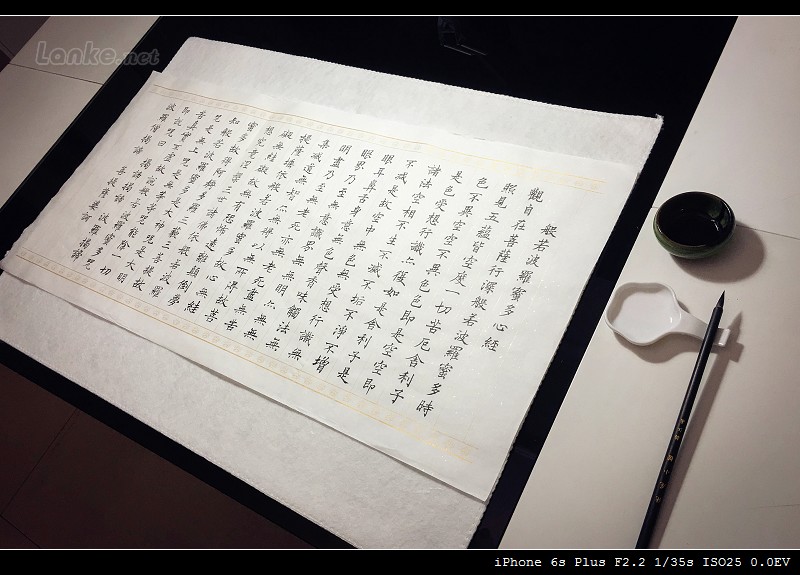 Lanke.net
般若波羅蜜多心經
觀自在菩薩行深般若波羅蜜多時
照見五蘊皆空度一切苦厄舍利子
色不異空空不異色色即是空空即
是色受想行識亦復如是舍利子是
諸法空相不生不滅不垢不淨不增
不減是故空中無色無受想行識無
眼耳鼻舌身意無色聲香味觸法無
眼界乃至無意識界無無明亦無無
明盡乃至無老死亦無老死盡無苦
集滅道無智亦無得以無所得故菩
提薩埵依般若波羅蜜多故心無罣
礙無罣礙故無有恐怖遠離顛倒夢
想究竟涅槃三世諸佛依般若波羅
蜜多故得阿耨多羅三藐三菩提故
知般若波羅蜜多是大神咒是大明
咒是無上咒是無等等咒能除一切
苦真實不虛故說般若波羅蜜多咒
即說咒曰 揭諦揭諦 波羅揭諦
波羅僧揭諦 菩提薩婆訶
iPhone 6s Plus F2.2 1/35s ISO25 0.0EV